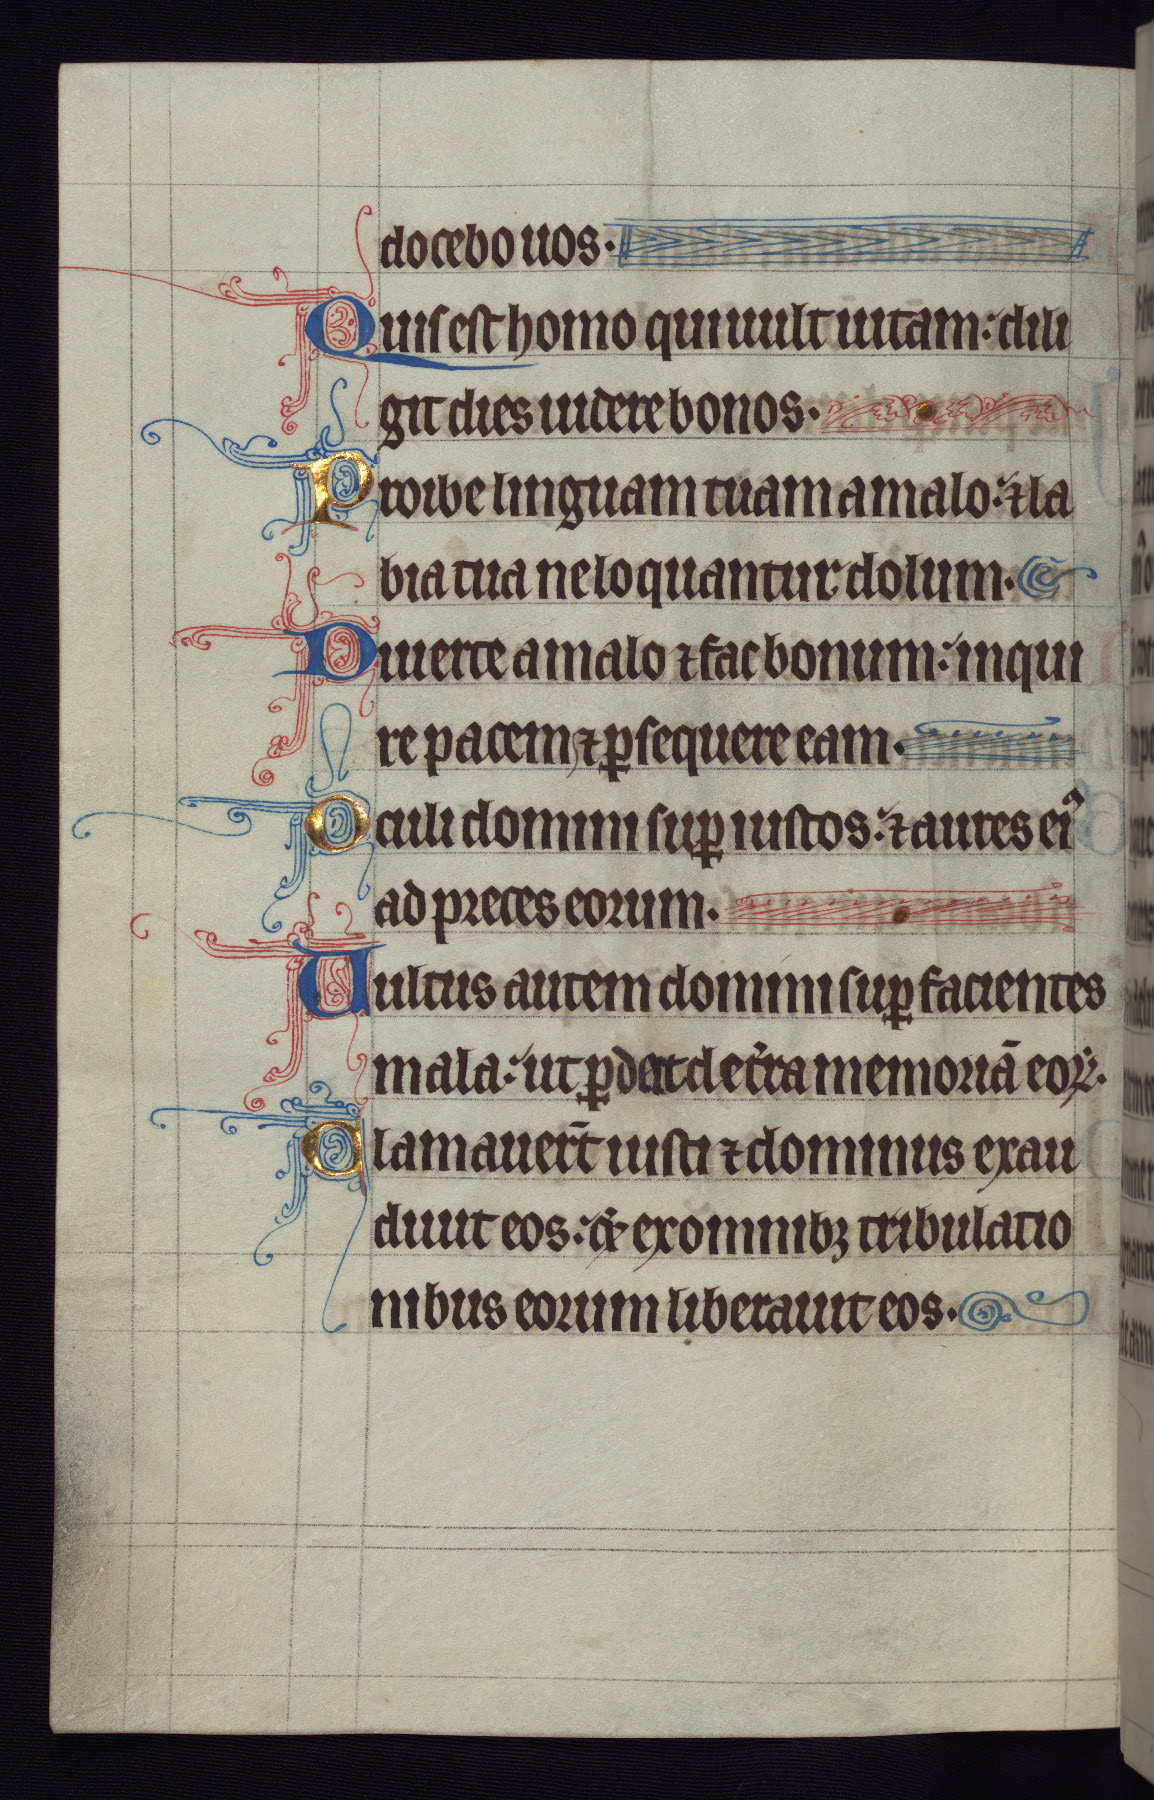 docebo uos·
Quis est homo qui uult uitam: dili
git dies uidere bonos·
Proibe linguam tuam a malo: ⁊ la
bia tua ne loquantur dolum·
Diuerte a malo ⁊ fac bonum: inqui
re pacem ⁊ ꝑsequere eam·
Oculi domini suꝑ iustos: ⁊ aures ei᾽
ad preces eorum·
Uultus autem domini suꝑ facientes
mala: ut ꝑdat de t̓ra memoriā eoꝝ·
Clamauer̄t iusti ⁊ dominus exau
diuit eos: ⁊ ex omnibꝫ tribulatio
nibus eorum liberauit eos·